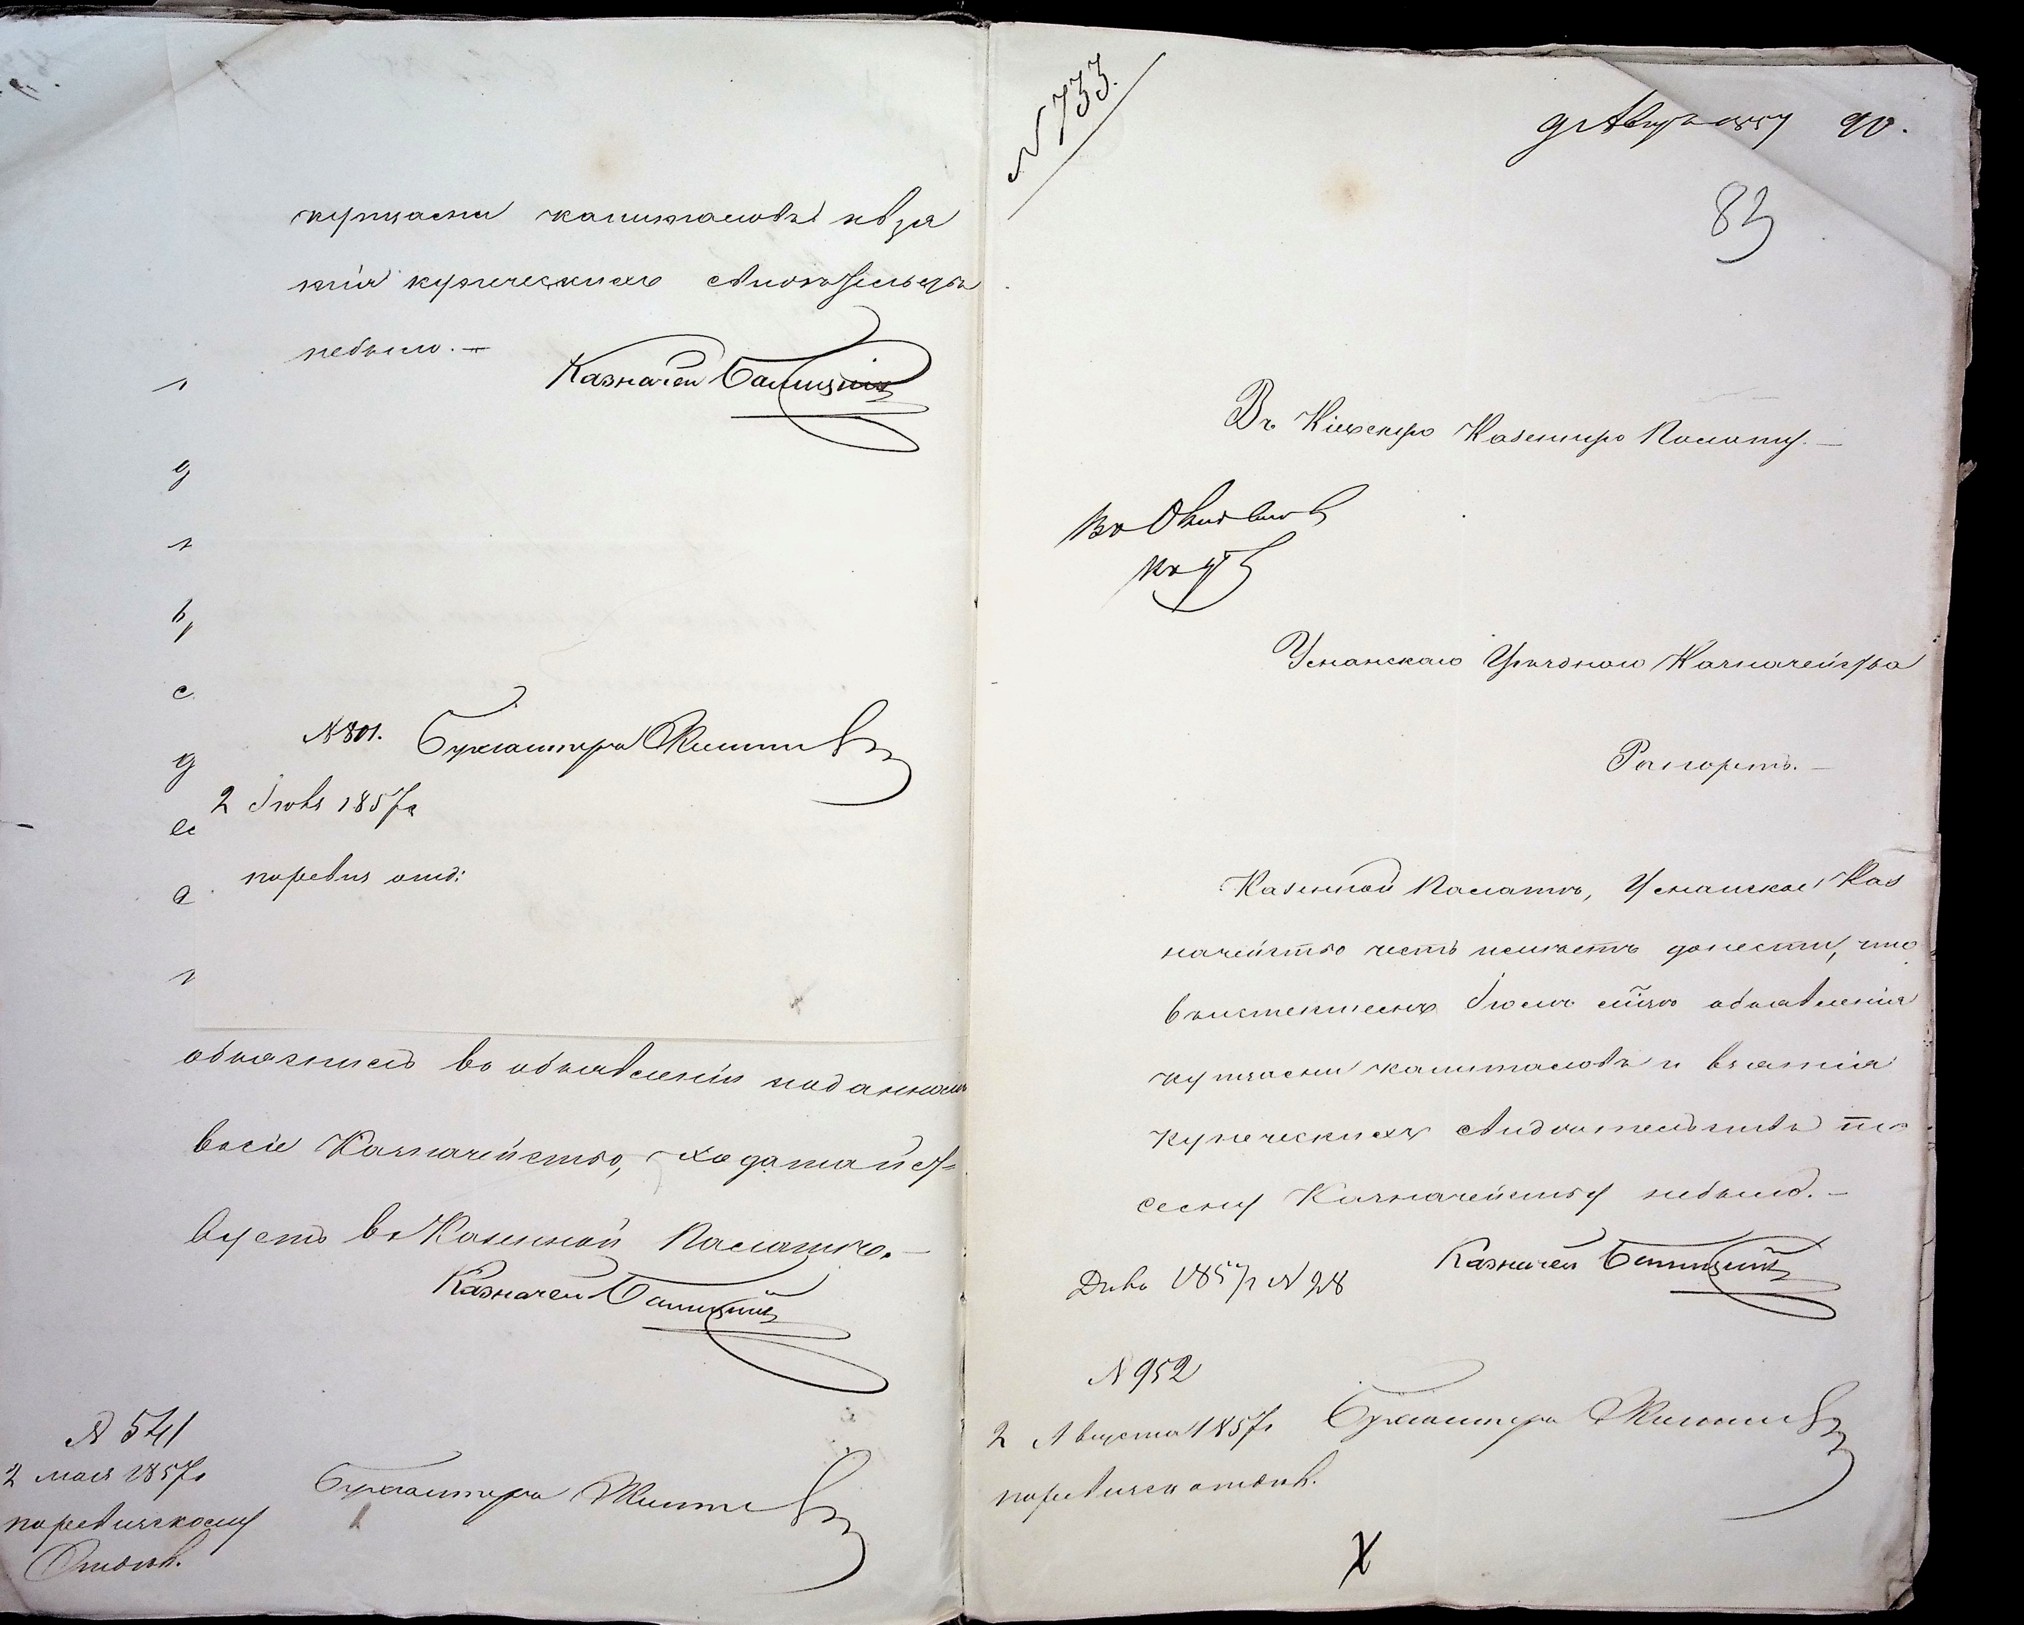 купцами капиталовъ и взя
тія купеческихъ свидѣтельствъ
небыло. —
Казначей Балицкій
№ 801. Бухгалтеръ
2 Іюля 1857 г
по ревиз отд:
объяснилъ въ объявленіи поданномъ
въ сіе Казначейство, ходатайст-
вуетъ въ Казенной Палатѣ. —
Казначей Балицкій
№ 541
2 мая 1857 г
по ревизскому
Отдѣл.
Бухгалтеръ
№ 733.
9 Августа 1857 90.
83
Въ Кіевскую Казенную Палату. —
Уманскаго Уѣзднаго Казначейства
Рапортъ. —
Казенной Палатѣ, Уманское Каз
начейство честь имѣетъ донести, что
въ истекшемъ Іюлѣ м͠цѣ объявленія
купцами капиталовъ и взятія
купеческихъ свидѣтельствъ по
сему Казначейству небыло. —
Казначей Балицкій
Дѣло 1857 г № 28
№ 952
2 Августа 1857 г Бухгалтеръ
по ревизск отдѣл.
X